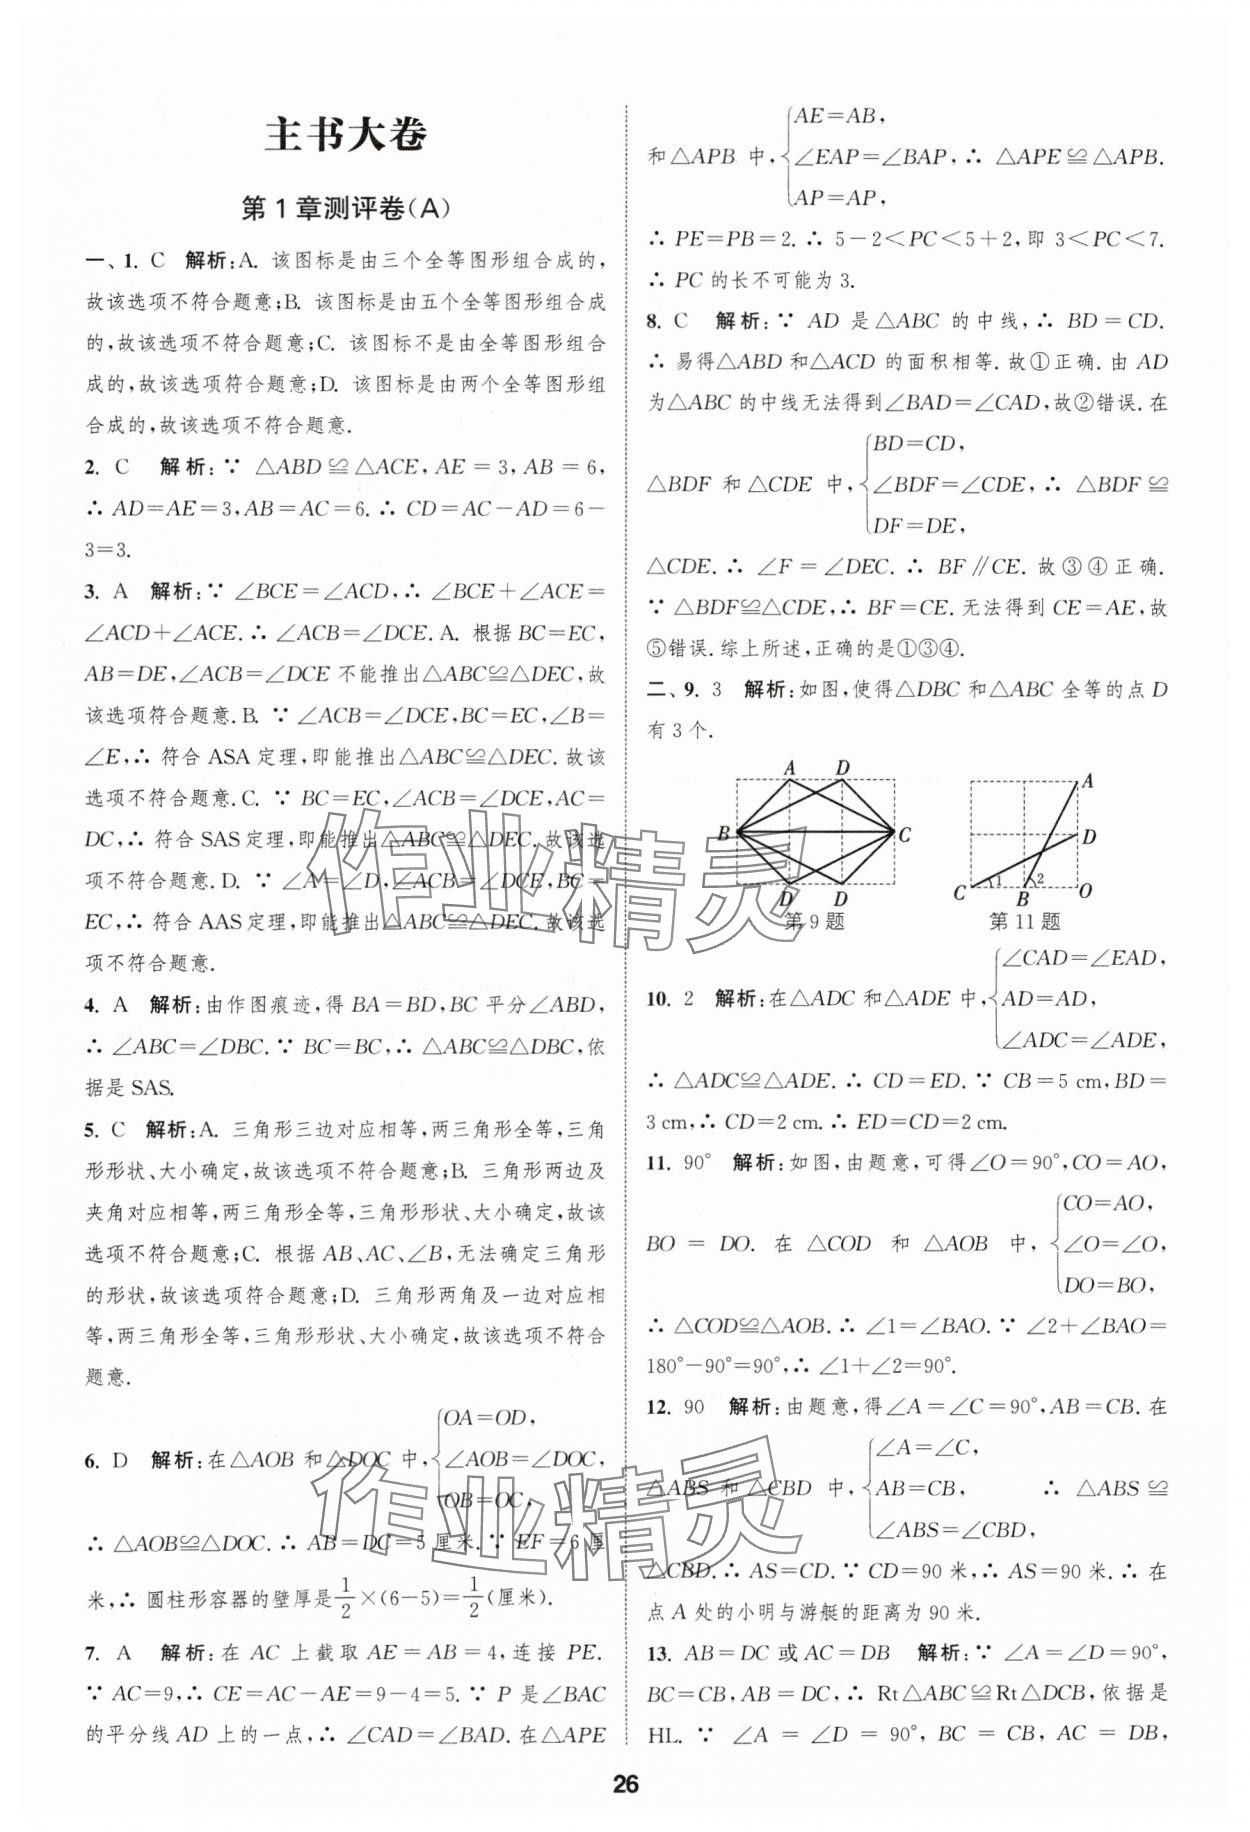 主书大卷
第1章测评卷(A)
一、1. C 解析:A. 该图标是由三个全等图形组合成的,
故该选项不符合题意;B. 该图标是由五个全等图形组合成
的,故该选项不符合题意;C. 该图标不是由全等图形组合
成的,故该选项符合题意;D. 该图标是由两个全等图形组
合成的,故该选项不符合题意.
2. C 解析:∵ △ABD≌△ACE,AE=3,AB=6,
∴ AD=AE=3,AB=AC=6.∴ CD=AC-AD=6-
3=3.
3. A 解析:∵ ∠BCE=∠ACD,∴ ∠BCE+∠ACE=
∠ACD+∠ACE.∴ ∠ACB=∠DCE.A. 根据BC=EC,
AB=DE,∠ACB=∠DCE不能推出△ABC≌△DEC,故
该选项符合题意.B. ∵ ∠ACB=∠DCE,BC=EC,∠B=
∠E,∴ 符合ASA定理,即能推出△ABC≌△DEC.故该
选项不符合题意.C. ∵ BC=EC,∠ACB=∠DCE,AC=
DC,∴ 符合SAS定理,即能推出△ABC≌△DEC.故该选
项不符合题意.D. ∵ ∠A=∠D,∠ACB=∠DCE,BC=
EC,∴ 符合AAS定理,即能推出△ABC≌△DEC.故该选
项不符合题意.
4. A 解析:由作图痕迹,得BA=BD,BC平分∠ABD,
∴ ∠ABC=∠DBC.∵ BC=BC,∴ △ABC≌△DBC,依
据是SAS.
5. C 解析:A. 三角形三边对应相等,两三角形全等,三角
形形状、大小确定,故该选项不符合题意;B. 三角形两边及
夹角对应相等,两三角形全等,三角形形状、大小确定,故该
选项不符合题意;C. 根据AB、AC、∠B,无法确定三角形
的形状,故该选项符合题意;D. 三角形两角及一边对应相
等,两三角形全等,三角形形状、大小确定,故该选项不符合
题意.
6. D 解析:在△AOB和△DOC中,{OA=OD,
∠AOB=∠DOC,
OB=OC,
∴ △AOB≌△DOC.∴ AB=DC=5厘米.∵ EF=6厘
米,∴ 圆柱形容器的壁厚是1/2×(6-5)=1/2(厘米).
7. A 解析:在AC上截取AE=AB=4,连接PE.
∵ AC=9,∴ CE=AC-AE=9-4=5.∵ P是∠BAC
的平分线AD上的一点,∴ ∠CAD=∠BAD.在△APE
和△APB中,{AE=AB,
∠EAP=∠BAP,∴ △APE≌△APB.
AP=AP,
∴ PE=PB=2.∴ 5-2<PC<5+2,即3<PC<7.
∴ PC的长不可能为3.
8. C 解析:∵ AD是△ABC的中线,∴ BD=CD.
∴ 易得△ABD和△ACD的面积相等.故①正确.由AD
为△ABC的中线无法得到∠BAD=∠CAD,故②错误.在
△BDF和△CDE中,{BD=CD,
∠BDF=∠CDE,∴ △BDF≌
DF=DE,
△CDE.∴ ∠F=∠DEC.∴ BF∥CE.故③④正确.
∵ △BDF≌△CDE,∴ BF=CE.无法得到CE=AE,故
⑤错误.综上所述,正确的是①③④.
二、9. 3 解析:如图,使得△DBC和△ABC全等的点D
有3个.
A D B C D D
第9题
A D C 1 B 2 O
第11题
10. 2 解析:在△ADC和△ADE中,{∠CAD=∠EAD,
AD=AD,
∠ADC=∠ADE,
∴ △ADC≌△ADE.∴ CD=ED.∵ CB=5 cm,BD=
3 cm,∴ CD=2 cm.∴ ED=CD=2 cm.
11. 90° 解析:如图,由题意,可得∠O=90°,CO=AO,
BO=DO.在△COD和△AOB中,{CO=AO,
∠O=∠O,
DO=BO,
∴ △COD≌△AOB.∴ ∠1=∠BAO.∵ ∠2+∠BAO=
180°-90°=90°,∴ ∠1+∠2=90°.
12. 90 解析:由题意,得∠A=∠C=90°,AB=CB.在
△ABS和△CBD中,{∠A=∠C,
AB=CB, ∴ △ABS≌
∠ABS=∠CBD,
△CBD.∴ AS=CD.∵ CD=90米,∴ AS=90米.∴ 在
点A处的小明与游艇的距离为90米.
13. AB=DC或AC=DB 解析:∵ ∠A=∠D=90°,
BC=CB,AB=DC,∴ Rt△ABC≌Rt△DCB,依据是
HL.∵ ∠A=∠D=90°,BC=CB,AC=DB,
26
作业精灵
作业精灵